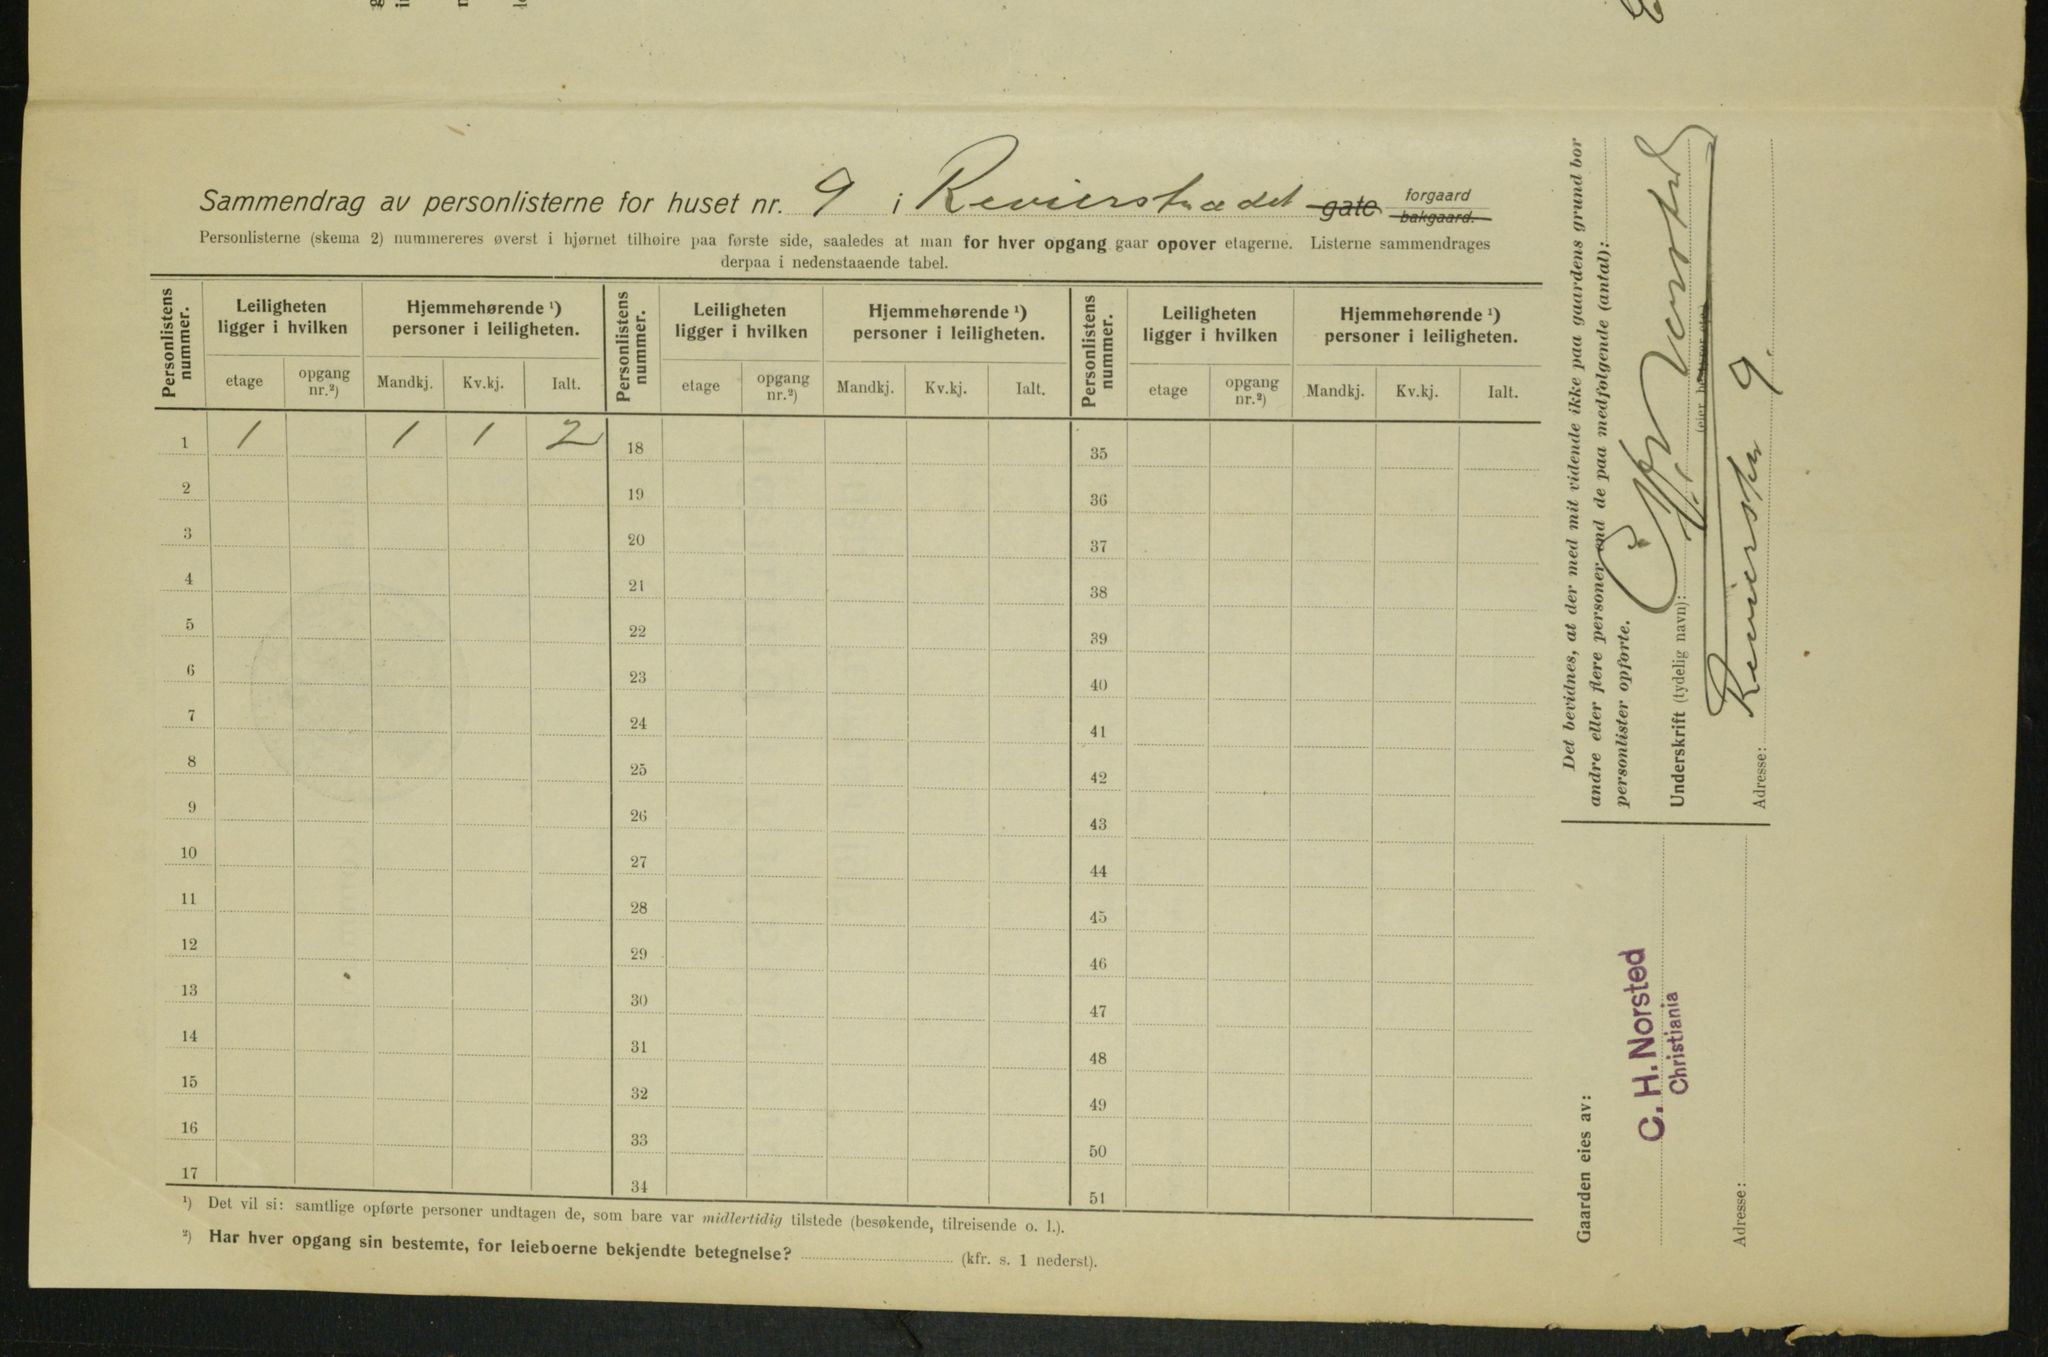 Sammendrag av personlisterne for huset nr. 9 i Revierstrædet gate forgaard bakgaard.
Personlisterne (skema 2) nummereres øverst i hjørnet tilhøire paa første side, saaledes at man for hver opgang gaar opover etagerne. Listerne sammendrages
derpaa i nedenstaaende tabel.
Personlistens nummer. Leiligheten ligger i hvilken Hjemmehørende ¹) personer i leiligheten. Personlistens nummer. Leiligheten ligger i hvilken Hjemmehørende ¹) personer i leiligheten. Personlistens nummer. Leiligheten ligger i hvilken Hjemmehørende ¹) personer i leiligheten.
etage opgang nr.²) Mandkj. Kv.kj. Ialt. etage opgang nr.²) Mandkj. Kv.kj. Ialt. etage opgang nr.²) Mandkj. Kv.kj. Ialt.
1 1 1 1 2 18 35
2 19 36
3 20 37
4 21 38
5 22 39
6 23 40
7 24 41
8 25 42
9 26 43
10 27 44
11 28 45
12 29 46
13 30 47
14 31 48
15 32 49
16 33 50
17 34 51
¹) Det vil si: samtlige opførte personer undtagen de, som bare var midlertidig tilstede (besøkende, tilreisende o. l.).
²) Har hver opgang sin bestemte, for leieboerne bekjendte betegnelse? (kfr. s. 1 nederst).
Det bevidnes, at der med mit vidende ikke paa gaardens grund bor
andre eller flere personer end de paa medfølgende (antal):
personlister opførte.
Underskrift (tydelig navn): C. H. Norsted
(eier, bestyrer etc.)
Adresse: Revierstr 9.
Gaarden eies av:
C. H. Norsted
Christiania
Adresse: